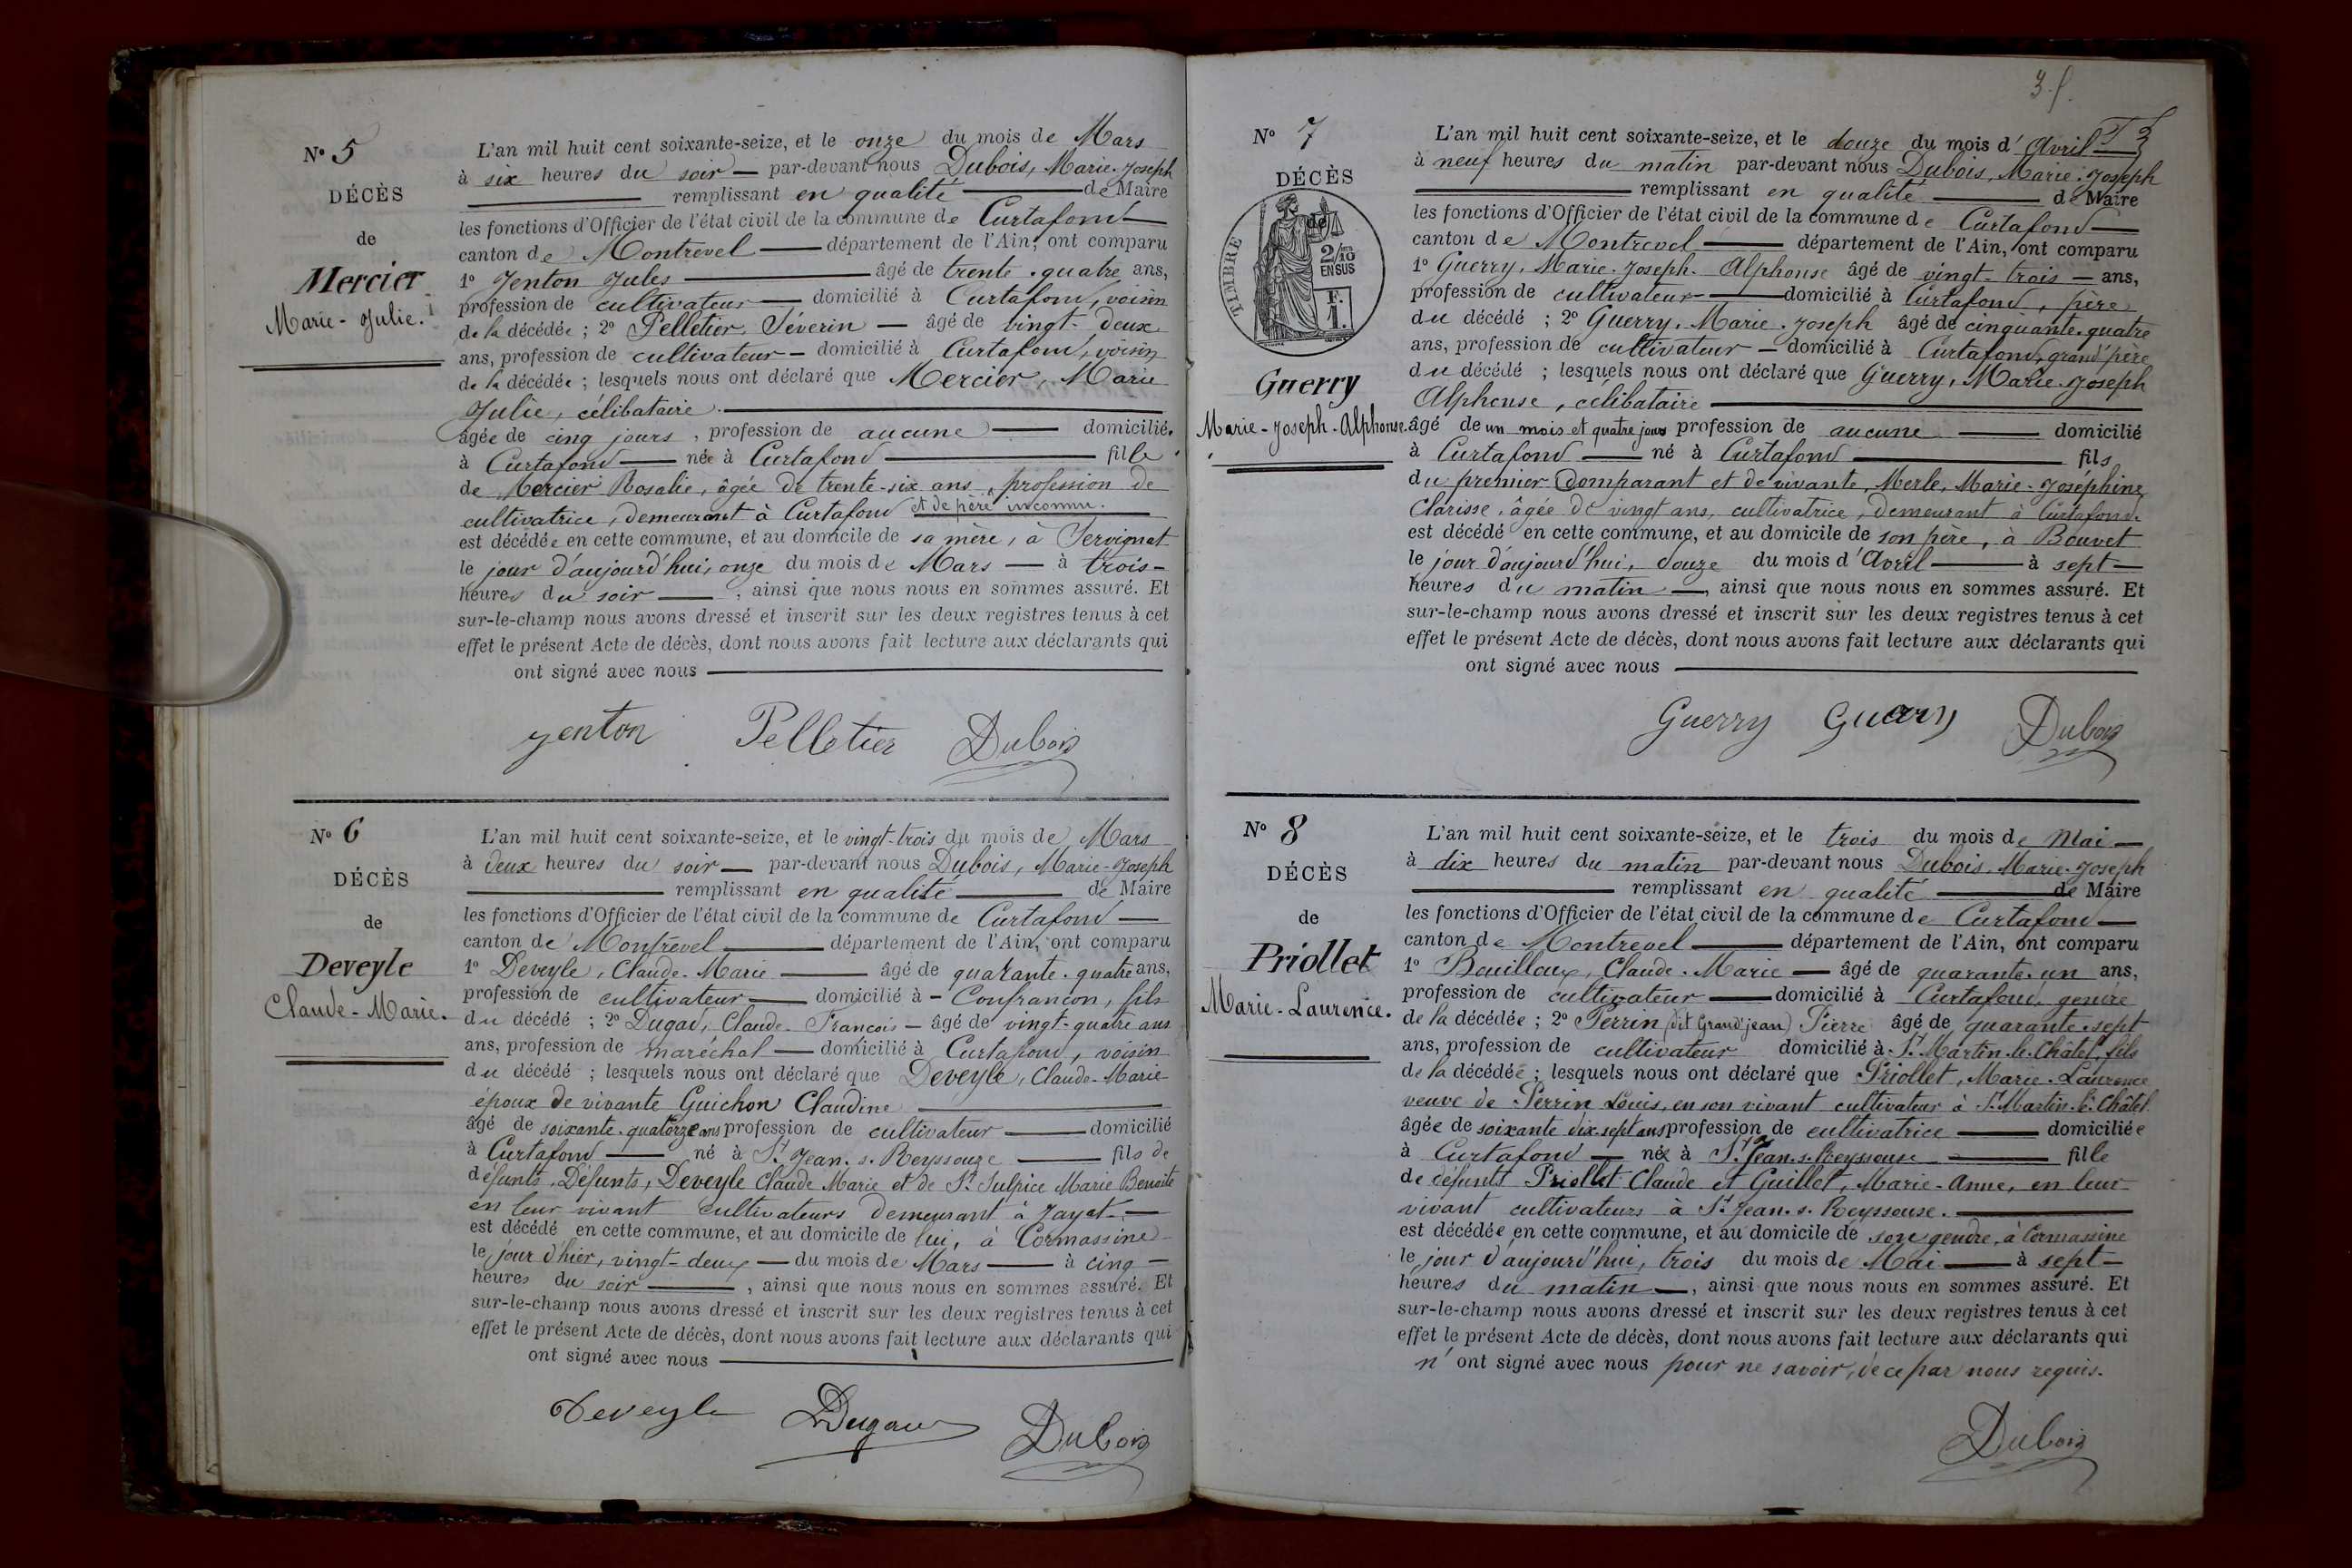 N° 5
DÉCÈS
de
Mercier
Marie-Julie.
L'an mil huit cent soixante-seize, et le onze du mois de Mars
à six heures du soir — par-devant nous Dubois, Marie-Joseph
remplissant en qualité de Maire
les fonctions d'Officier de l'état civil de la commune de Curtafond
canton de Montrevel département de l'Ain, ont comparu
1° Jenton Jules âgé de trente-quatre ans,
profession de cultivateur domicilié à Curtafond, voisin
de la décédée ; 2° Pelletier, Séverin — âgé de vingt-deux
ans, profession de cultivateur — domicilié à Curtafond, voisin
de la décédée ; lesquels nous ont déclaré que Mercier, Marie
Julie, célibataire.
âgée de cinq jours, profession de aucune domiciliée
à Curtafond née à Curtafond fille
de Mercier Rosalie, âgée de trente-six ans, profession de
cultivatrice, demeurant à Curtafond et de père inconnu.
est décédée en cette commune, et au domicile de sa mère, à Servignat
le jour d'aujourd'hui, onze du mois de Mars — à trois
heures du soir, ainsi que nous nous en sommes assuré. Et
sur-le-champ nous avons dressé et inscrit sur les deux registres tenus à cet
effet le présent Acte de décès, dont nous avons fait lecture aux déclarants qui
ont signé avec nous
Jenton Pelletier Dubois
N° 6
DÉCÈS
de
Deveyle
Claude-Marie.
L'an mil huit cent soixante-seize, et le vingt-trois du mois de Mars
à deux heures du soir — par-devant nous Dubois, Marie-Joseph
remplissant en qualité de Maire
les fonctions d'Officier de l'état civil de la commune de Curtafond
canton de Montrevel département de l'Ain, ont comparu
1° Deveyle, Claude-Marie âgé de quarante-quatre ans,
profession de cultivateur domicilié à Confrançon, fils
du décédé ; 2° Dugad, Claude-François — âgé de vingt-quatre ans
ans, profession de maréchal domicilié à Curtafond, voisin
du décédé ; lesquels nous ont déclaré que Deveyle, Claude-Marie
époux de vivante Guichon Claudine
âgé de soixante-quatorze ans profession de cultivateur domicilié
à Curtafond né à St Jean-s-Reyssouze fils de
défunts, Défunts, Deveyle Claude Marie et de St Sulpice Marie Benoite
en leur vivant cultivateurs demeurant à Jayat
est décédé en cette commune, et au domicile de lui, à Cormassine
le jour d'hier, vingt-deux — du mois de Mars — à cinq
heures du soir, ainsi que nous nous en sommes assuré. Et
sur-le-champ nous avons dressé et inscrit sur les deux registres tenus à cet
effet le présent Acte de décès, dont nous avons fait lecture aux déclarants qui
ont signé avec nous
Deveyle Dugad Dubois
N° 7
DÉCÈS
de
TIMBRE
2/10
EN SUS
F.
1.
Guerry
Marie-Joseph-Alphonse.
L'an mil huit cent soixante-seize, et le douze du mois d'Avril
à neuf heures du matin par-devant nous Dubois, Marie-Joseph
remplissant en qualité de Maire
les fonctions d'Officier de l'état civil de la commune de Curtafond
canton de Montrevel département de l'Ain, ont comparu
1° Guerry, Marie-Joseph-Alphonse âgé de vingt-trois — ans,
profession de cultivateur domicilié à Curtafond, père
du décédé ; 2° Guerry, Marie-Joseph âgé de cinquante-quatre
ans, profession de cultivateur — domicilié à Curtafond, grand'père
du décédé ; lesquels nous ont déclaré que Guerry, Marie-Joseph
Alphonse, célibataire
âgé de un mois et quatre jours profession de aucune domicilié
à Curtafond né à Curtafond fils
du premier Comparant et de vivante, Merle, Marie-Joséphine
Clarisse, âgée de vingt ans, cultivatrice, demeurant à Curtafond.
est décédé en cette commune, et au domicile de son père, à Bouvet
le jour d'aujourd'hui, douze du mois d'Avril à sept
heures du matin, ainsi que nous nous en sommes assuré. Et
sur-le-champ nous avons dressé et inscrit sur les deux registres tenus à cet
effet le présent Acte de décès, dont nous avons fait lecture aux déclarants qui
ont signé avec nous
Guerry Guerry Dubois
N° 8
DÉCÈS
de
Priollet
Marie-Laurence.
L'an mil huit cent soixante-seize, et le trois du mois de Mai
à dix heures du matin par-devant nous Dubois, Marie-Joseph
remplissant en qualité de Maire
les fonctions d'Officier de l'état civil de la commune de Curtafond
canton de Montrevel département de l'Ain, ont comparu
1° Bouilloux, Claude-Marie — âgé de quarante-un ans,
profession de cultivateur domicilié à Curtafond, gendre
de la décédée ; 2° Perrin (dit Grand'jean) Pierre âgé de quarante-sept
ans, profession de cultivateur domicilié à St Martin-le-Châtel, fils
de la décédée ; lesquels nous ont déclaré que Priollet, Marie-Laurence
veuve de Perrin Louis, en son vivant cultivateur à St Martin-le-Châtel
âgée de soixante dix sept ans profession de cultivatrice domiciliée
à Curtafond née à St Jean-s-Reyssouse fille
de défunts Priollet Claude et Guillet, Marie-Anne, en leur
vivant cultivateurs à St Jean-s-Reyssouse.
est décédée en cette commune, et au domicile de son gendre, à Cormassine
le jour d'aujourd'hui, trois du mois de Mai à sept
heures du matin, ainsi que nous nous en sommes assuré. Et
sur-le-champ nous avons dressé et inscrit sur les deux registres tenus à cet
effet le présent Acte de décès, dont nous avons fait lecture aux déclarants qui
n'ont signé avec nous pour ne savoir, de ce par nous requis.
Dubois